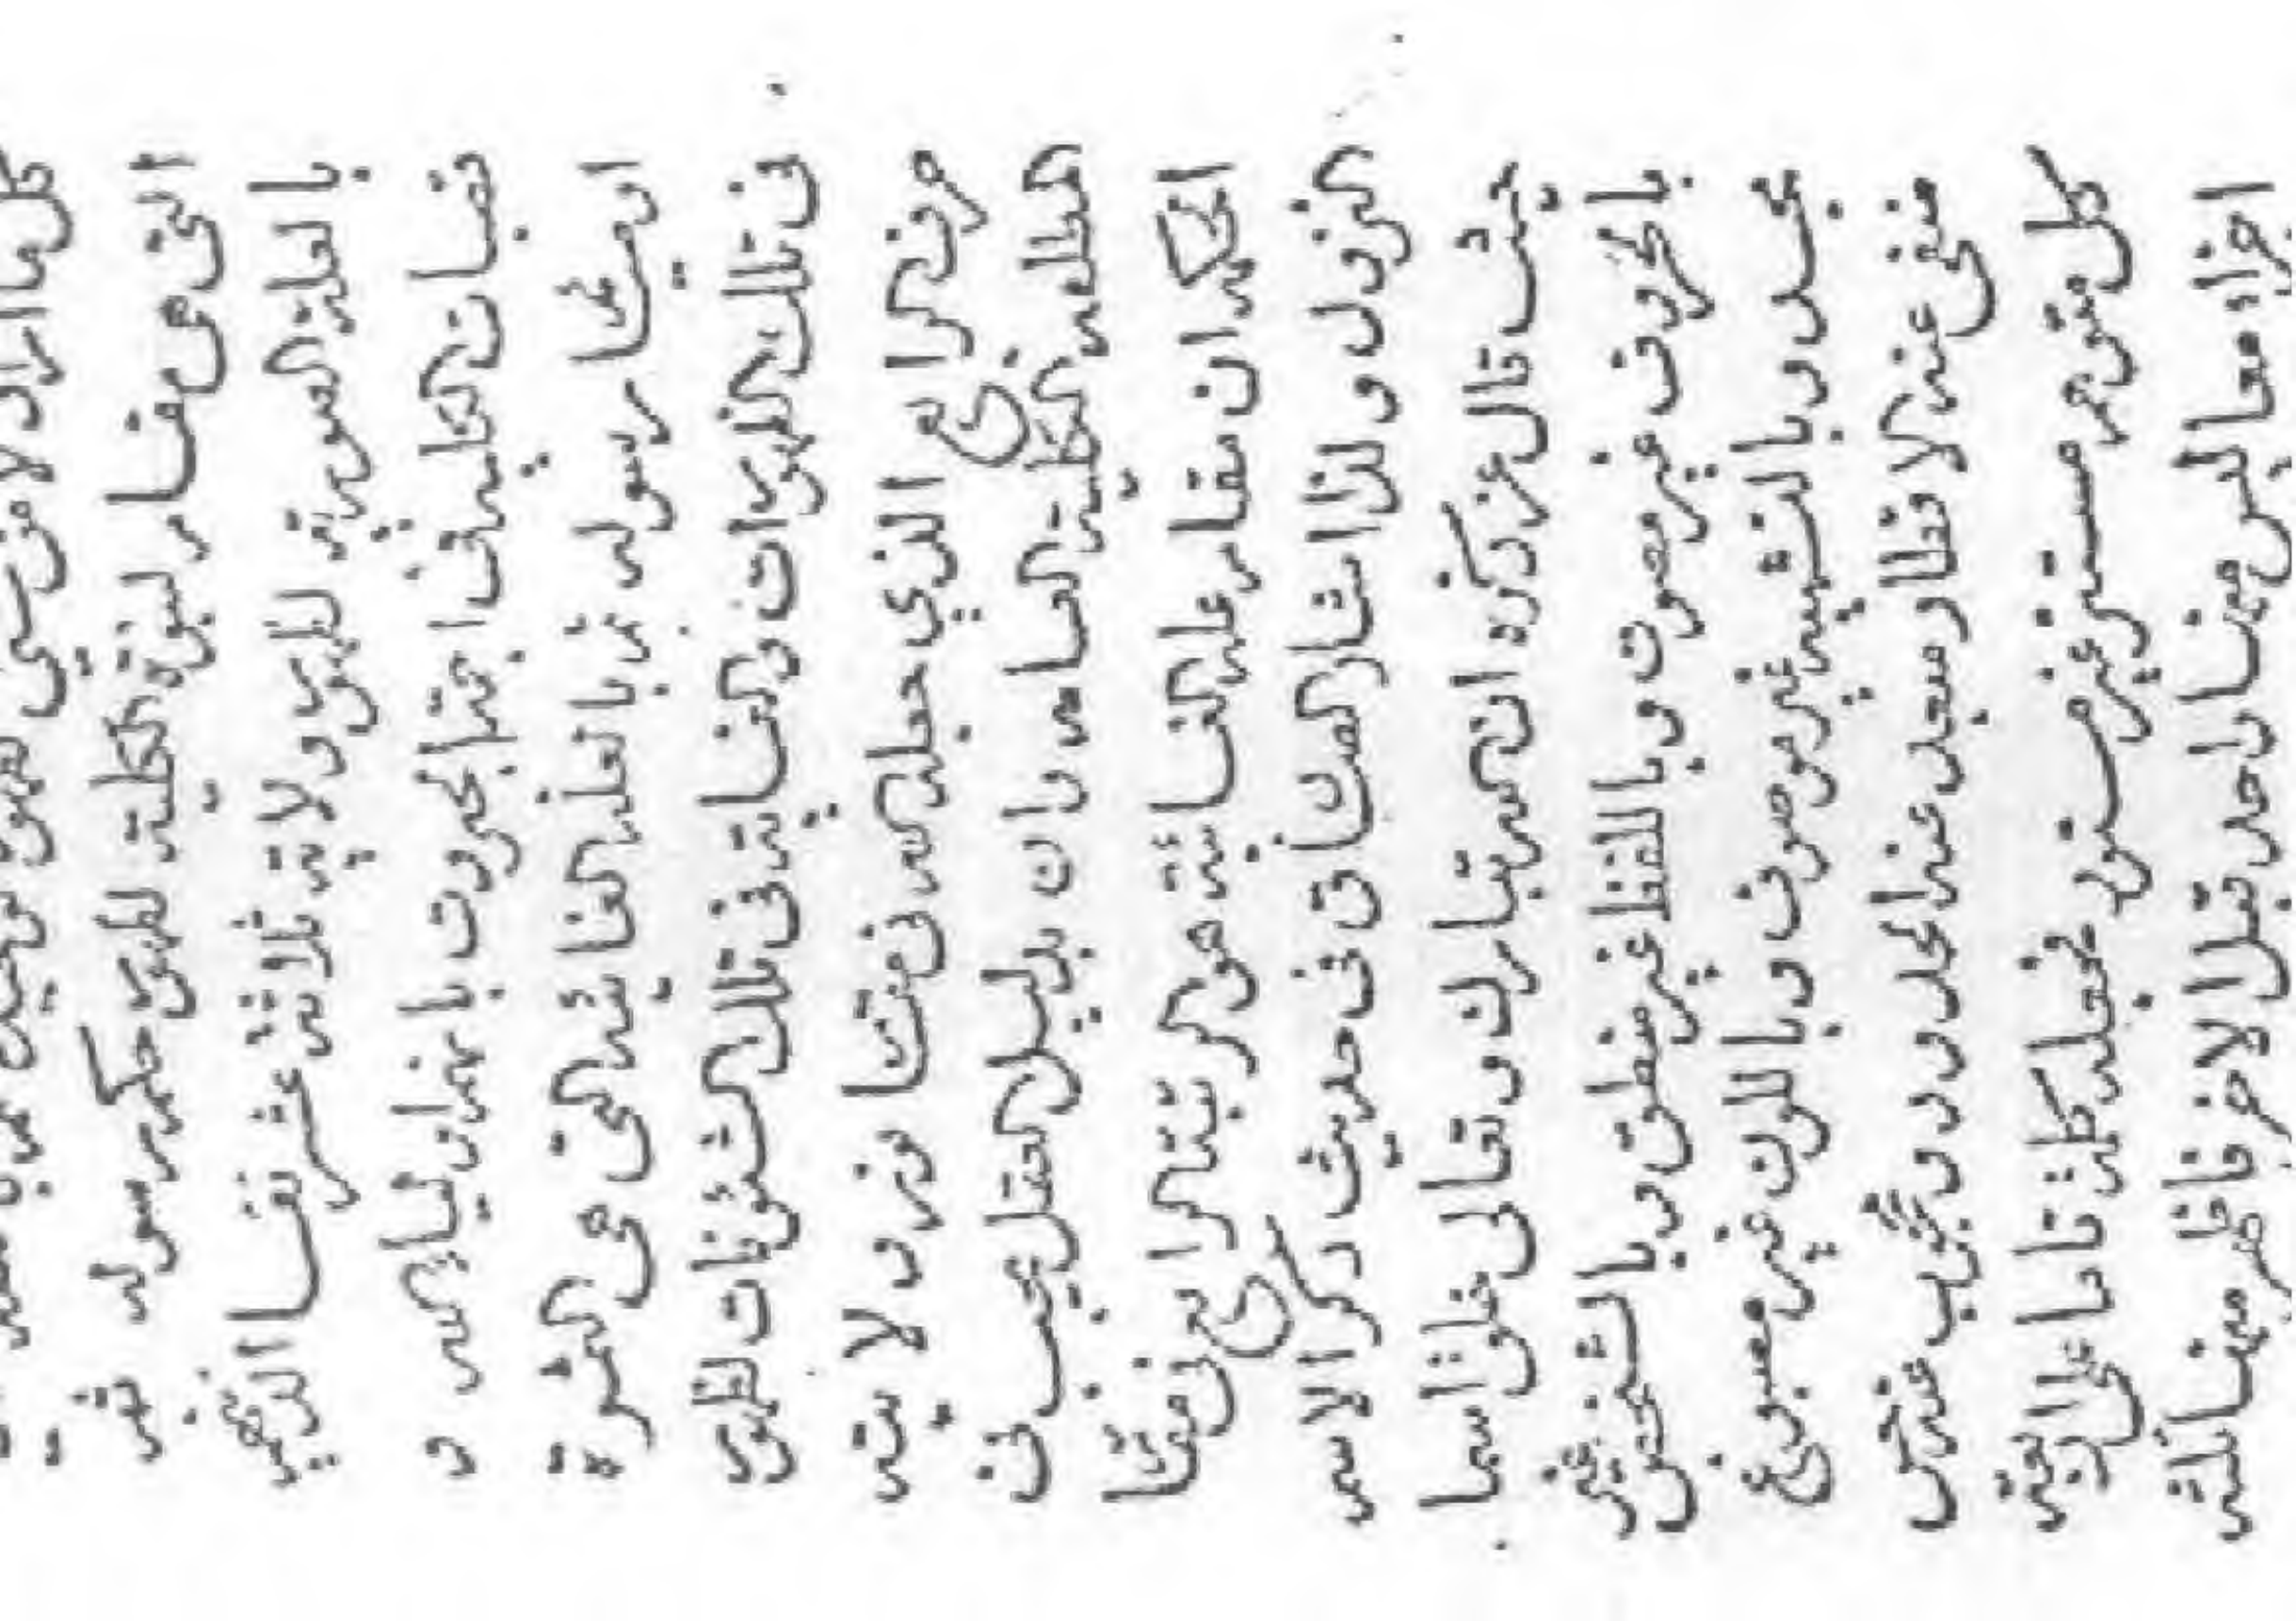 كل ما اراد لا من شيء
التي هي مقام النبوة الكلية لظهور حكم رسوله ثم
با لعلة الصورية لظهور ولاية ثلاثة عشر نفسا الذين هم
قصبات الكلية في اجمة الجبروت اولياء الله و
اوصياء رسوله ثم با لعلة الغائية التي هي الثمرة
في تلك الظهورات والغاية في تلك الشئونات لظهور
الرابع الذي جعله الله في مقام لا
الكلية العامة وان بدليل العقل يجب في
الحكم ان مقام علة الغائية هو رتبة الرابع في مقام
النزول ولذا اشار الصادق في حديث ذكر الاسم
حيث قال عز ذكره ان الله تبارك وتعالى خلق اسما
بالحروف غير مصوت وباللفظ غير منطق وبالشخص غير
مجسد وبالتشبيه غير موصوف وباللون غير مصبوغ
منفي عنه الاقطار مبعد عنه الحدود محجوب عنه حس
كل متوهم مستتر غير مستور فجعله كلمة تامة على اربعة
اجزاء معا ليس منها واحد قبل الاخر فاظهر منها ثلثة